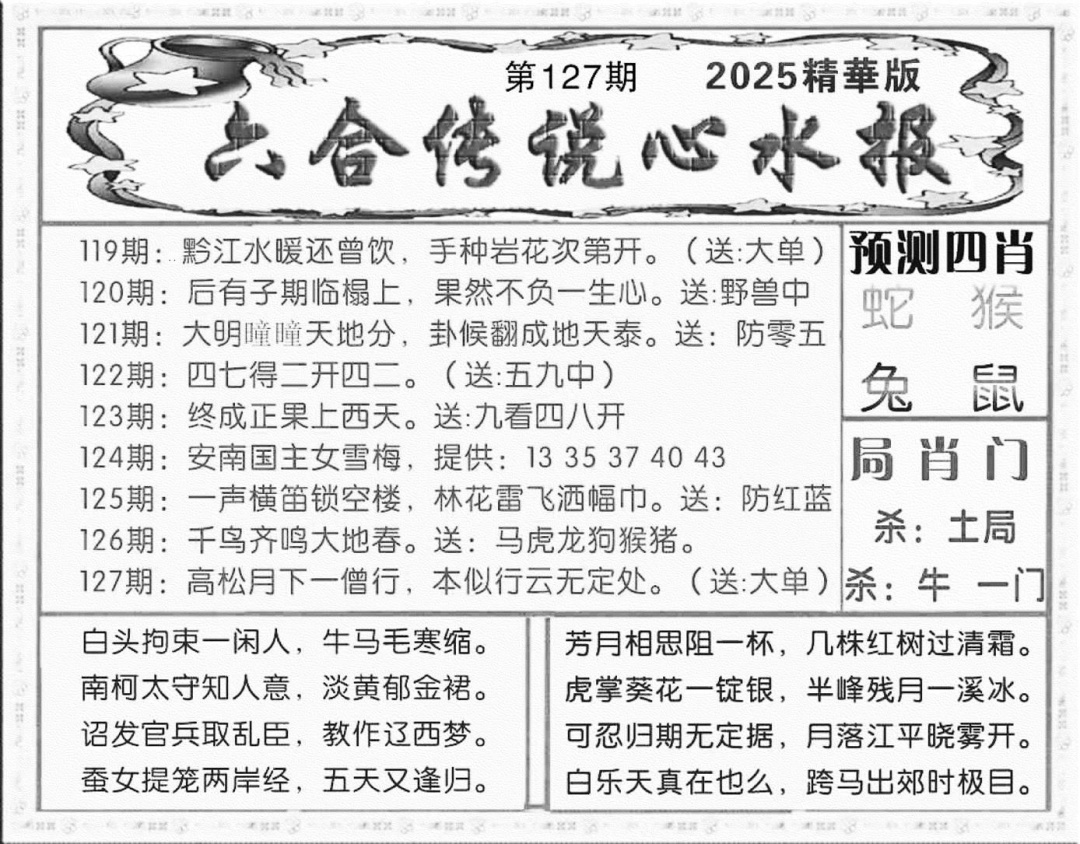 第127期 2025精華版
六合传说心水报
119期：黔江水暖还曾饮，手种岩花次第开。（送:大单）
120期：后有子期临榻上，果然不负一生心。送:野兽中
121期：大明曈曈天地分，卦候翻成地天泰。送：防零五
122期：四七得二开四二。（送:五九中）
123期：终成正果上西天。送:九看四八开
124期：安南国主女雪梅，提供：13 35 37 40 43
125期：一声横笛锁空楼，林花雷飞洒幅巾。送：防红蓝
126期：千鸟齐鸣大地春。送：马虎龙狗猴猪。
127期：高松月下一僧行，本似行云无定处。（送:大单）
预测四肖
蛇 猴
兔 鼠
局肖门
杀：土局
杀：牛 一门
白头拘束一闲人，牛马毛寒缩。
南柯太守知人意，淡黄郁金裙。
诏发官兵取乱臣，教作辽西梦。
蚕女提笼两岸经，五天又逢归。
芳月相思阻一杯，几株红树过清霜。
虎掌葵花一锭银，半峰残月一溪冰。
可忍归期无定据，月落江平晓雾开。
白乐天真在也么，跨马出郊时极目。